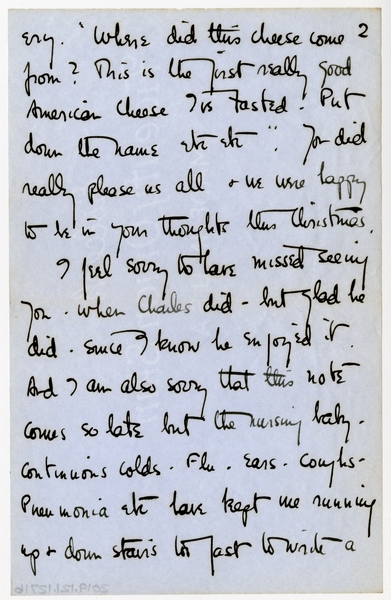 ery. "Where did this cheese come 2
from? This is the first really good
American cheese I've tasted. Put
down the name etc etc". You did
really please us all & we were happy
to be in your thoughts this Christmas.
I feel sorry to have missed seeing
you. when Charles did - but glad he
did. since I know he enjoyed it.
And I am also sorry that this note
comes so late but the nursing baby.
continuous colds. Flu. Ears. Coughs-
Pneumonia etc have kept me running
up & down stairs too fast to write a
2019.12.1.12716